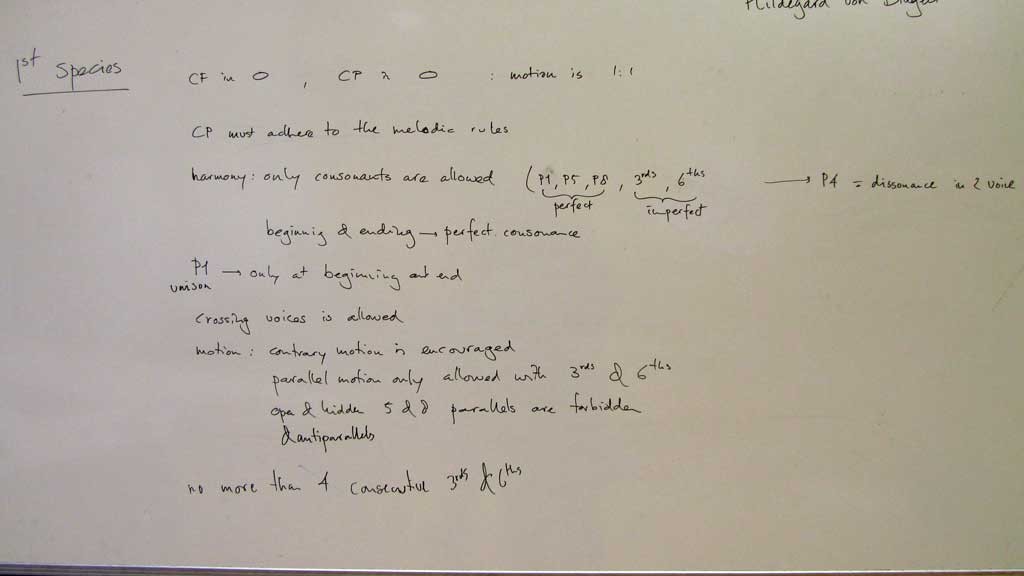 Hildegard von Bingen
1st Species
CF in O , CP in O : motion is 1:1
CP must adhere to the melodic rules
harmony: only consonants are allowed (P1, P5, P8, 3rds, 6ths → P4 = dissonance in 2 voice
perfect imperfect
beginnig & ending → perfect consonance
P1 → only at beginning and end
unison
crossing voices is allowed
motion: contrary motion is encouraged
parallel motion only allowed with 3rds & 6ths
open & hidden 5 & 8 parallels are forbidden
& antiparallels
no more than 4 consecutive 3rds & 6ths